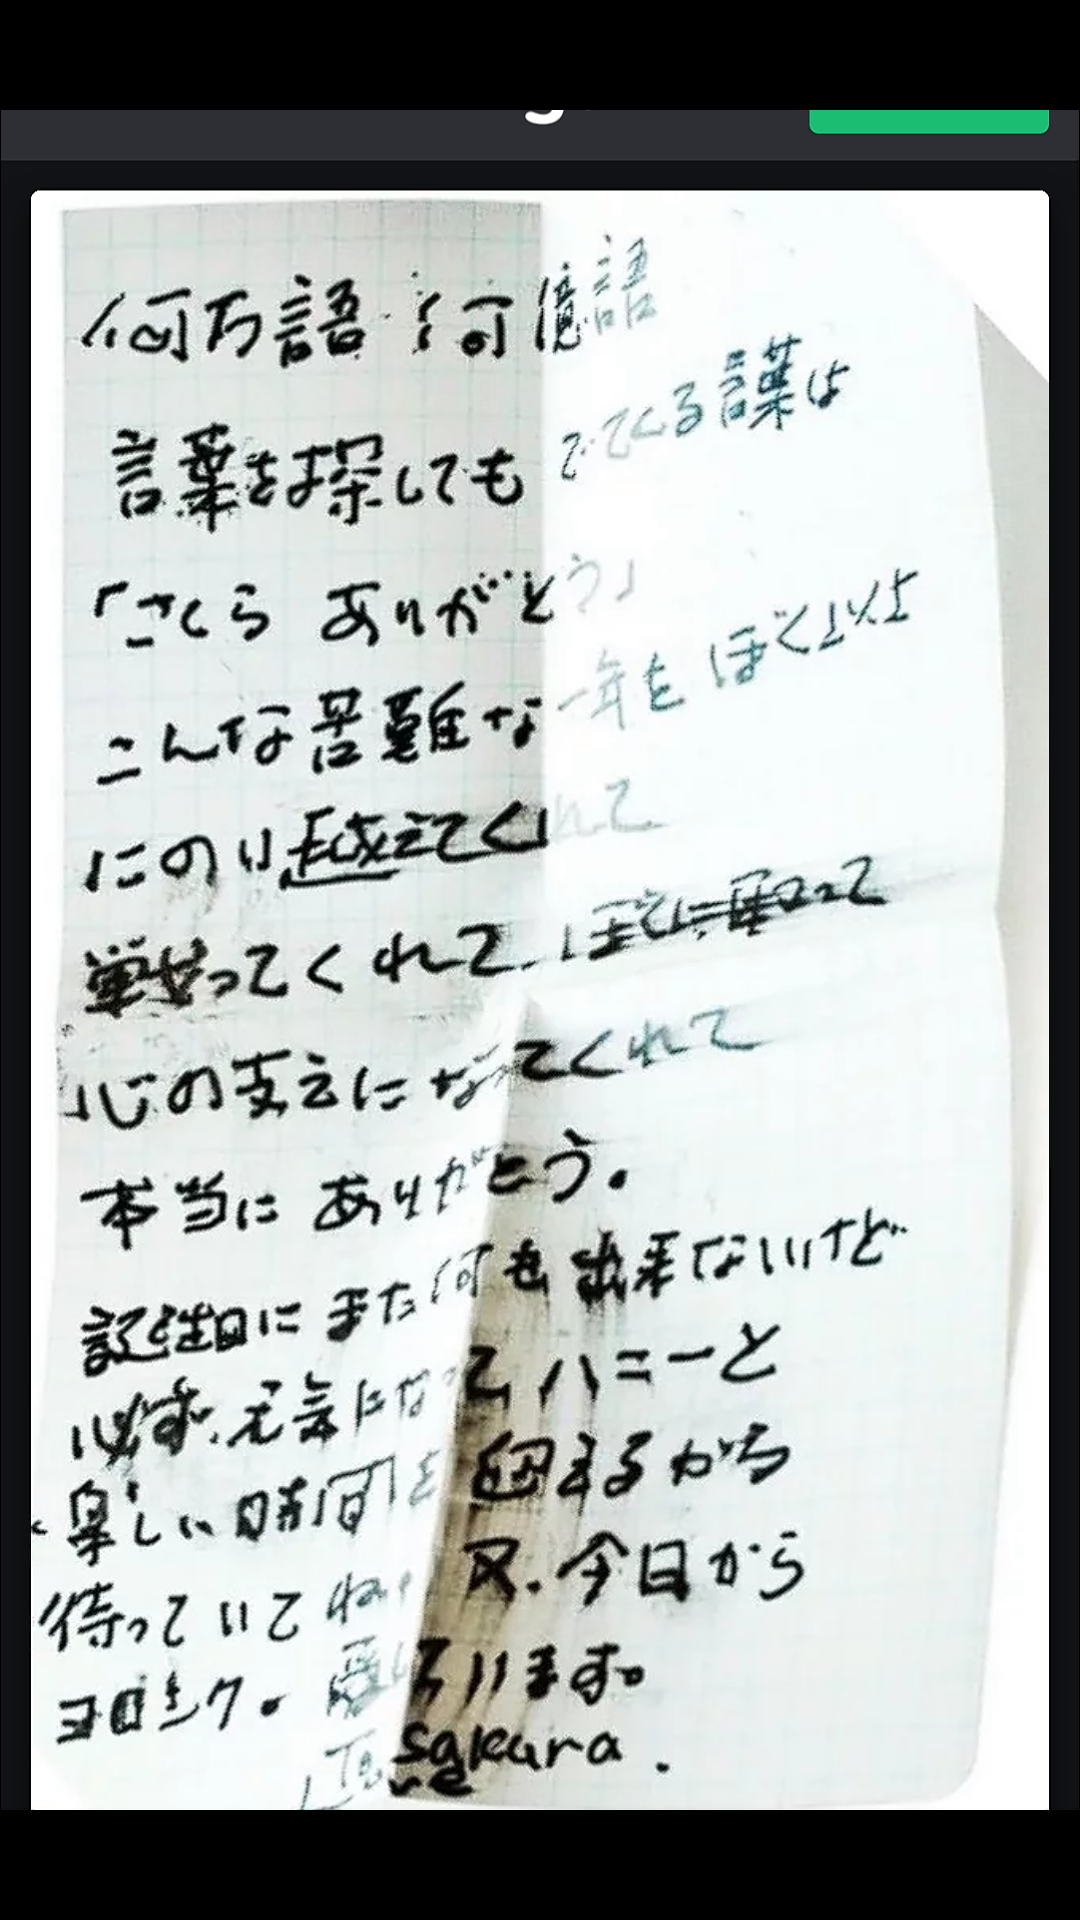 何万語 何億語
言葉を探しても でてくる言葉は
「さくら ありがとう」
こんな苦難な一年を ぼく以上
にのり越えてくれて
戦ってくれて
心の支えになってくれて
本当に ありがとう。
誕生日に また何も出来ないけど
必ず、元気になって ハニーと
楽しい時間を 過するから
待っていてね。 又、今日から
ヨロシク。 愛しています。
sakura.